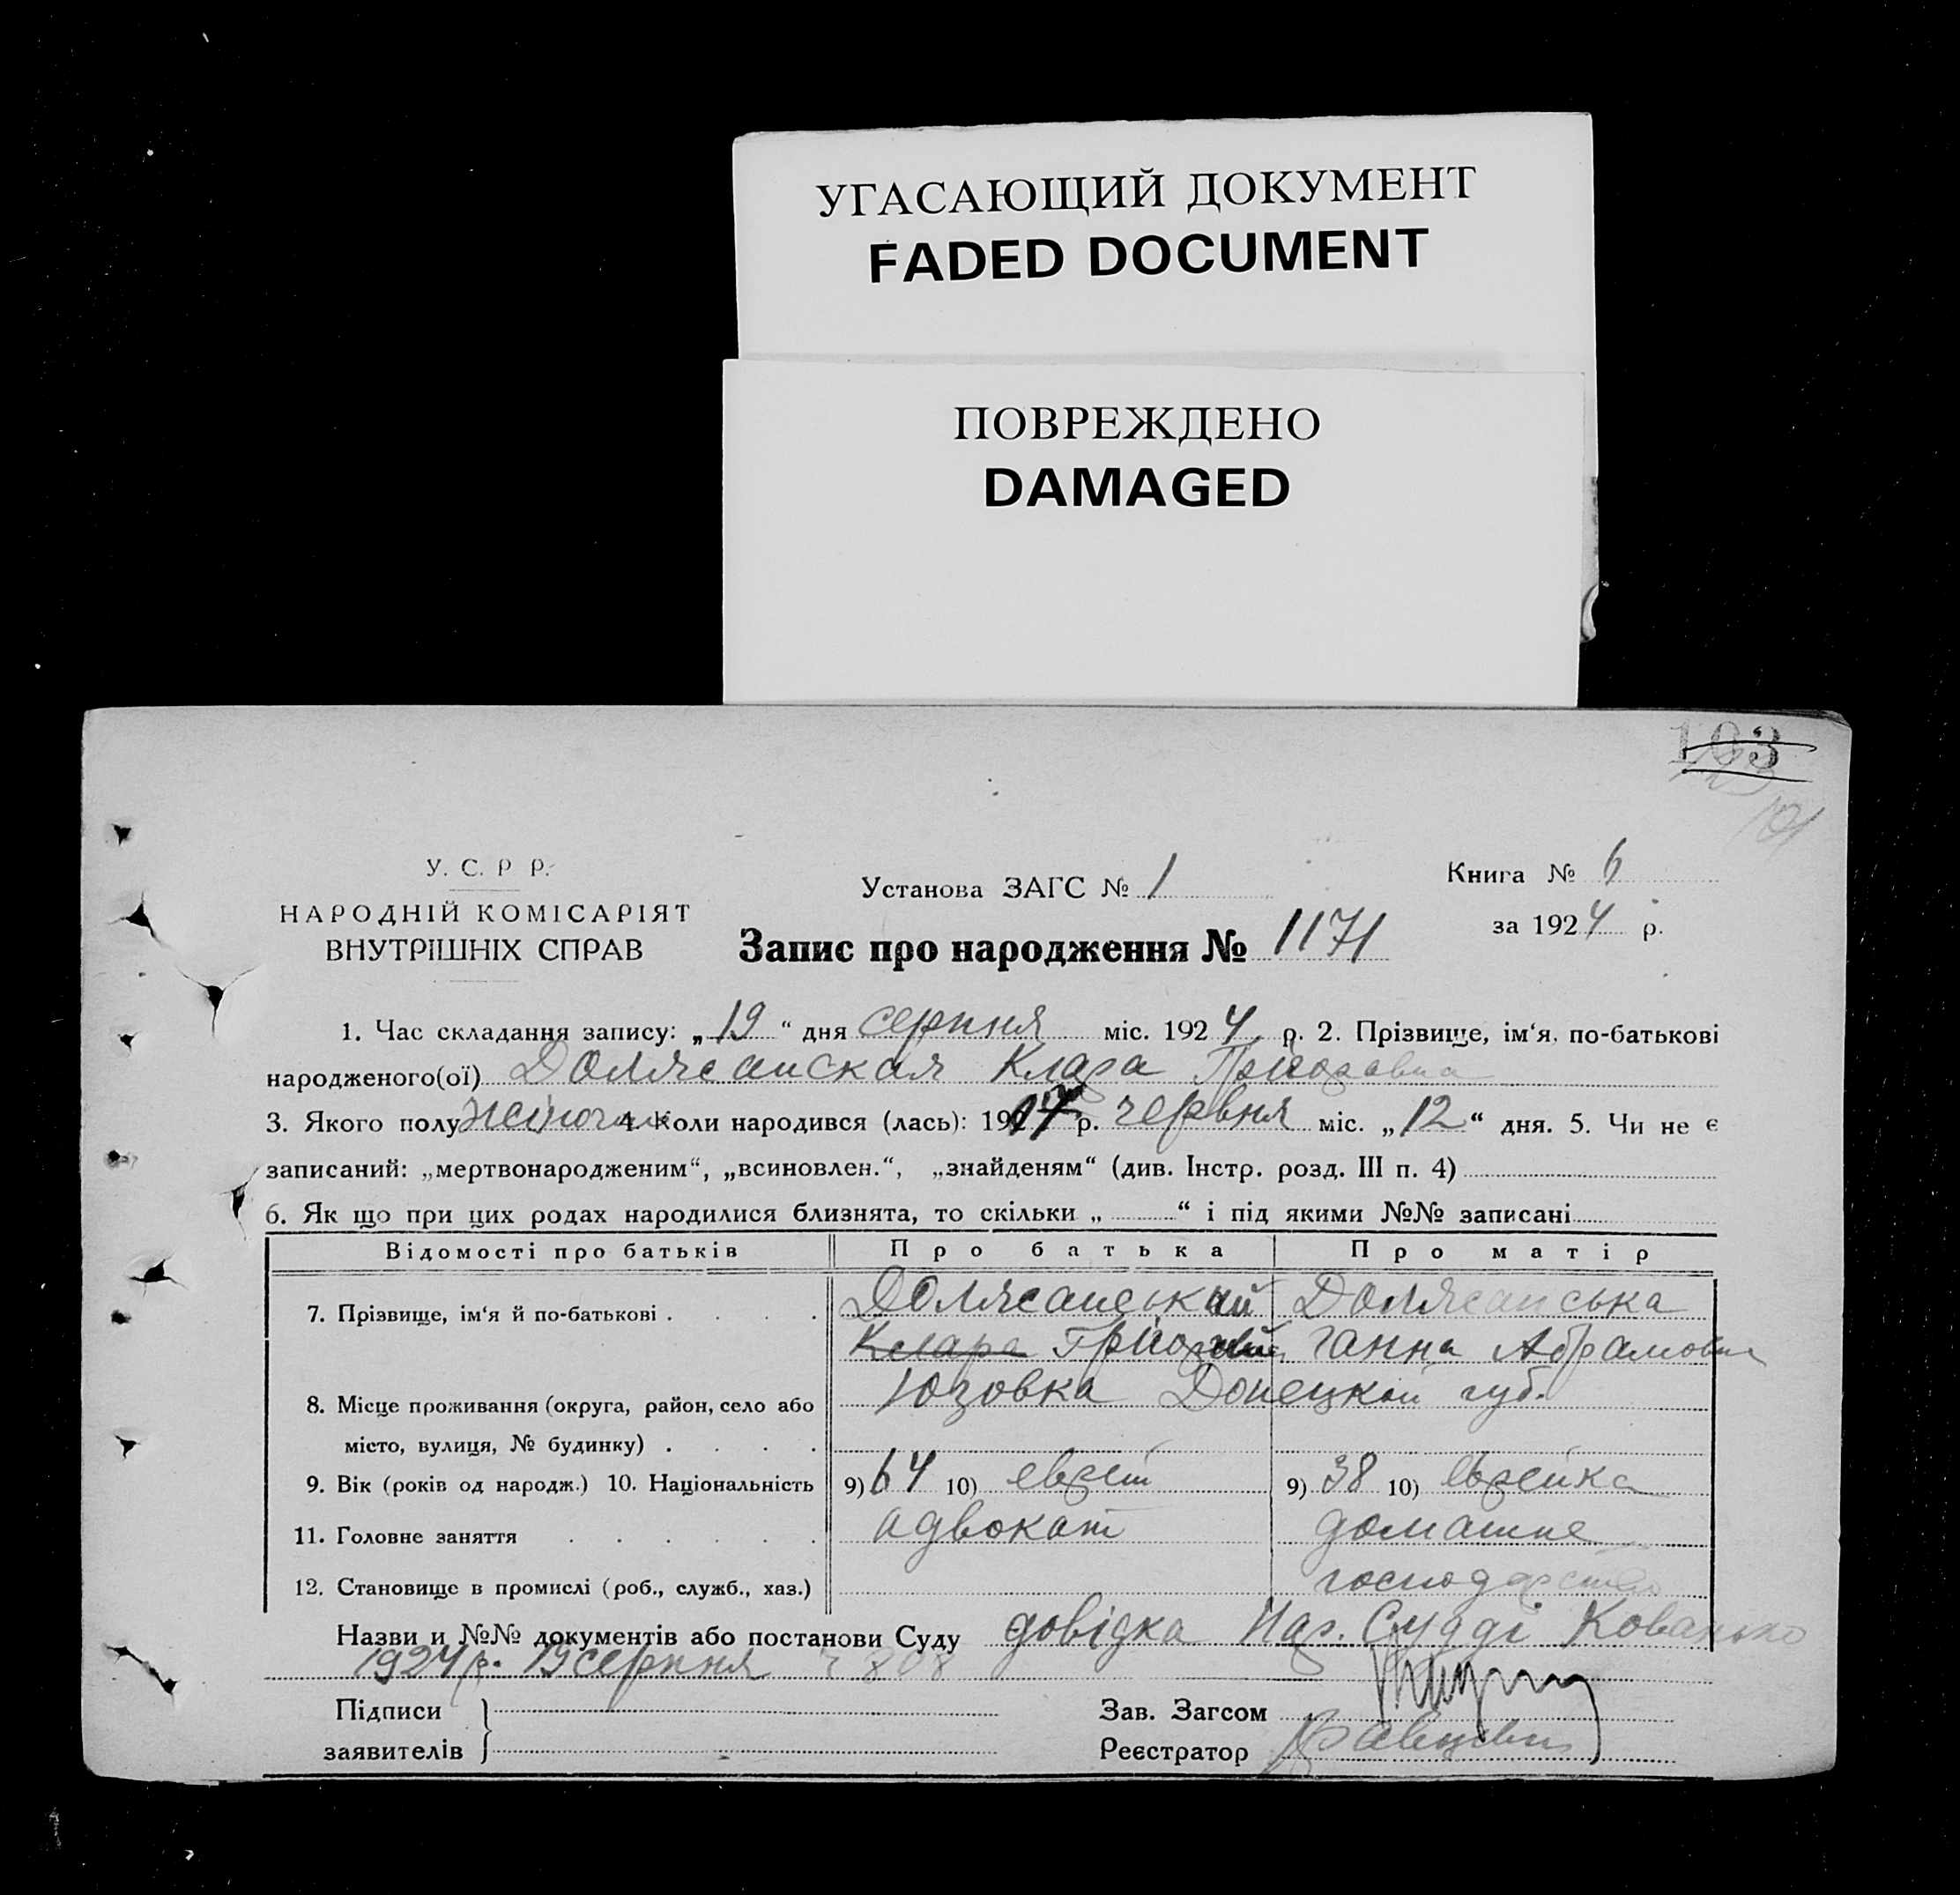 УГАСАЮЩИЙ ДОКУМЕНТ
FADED DOCUMENT
ПОВРЕЖДЕНО
DAMAGED
103
101
У. С. Р Р.
НАРОДНІЙ КОМІСАРІЯТ
ВНУТРІШНІХ СПРАВ
Установа ЗАГС № 1
Книга № 6
за 1924 р.
Запис про народження № 1171
1. Час складання запису: „19“ дня серпня міс. 1924 р. 2. Прізвище, ім‘я, по-батькові
народженого(ої) Должанская Клара
3. Якого полу жіночи 4 Коли народився (лась): 1917 р. червня міс. „12“ дня. 5. Чи не є
записаний: „мертвонародженим“, „всиновлен.“, „знайденям“ (див. Інстр. розд. III п. 4)
6. Як що при цих родах народилися близнята, то скільки „ “ і під якими №№ записані
Відомості про батьків Про батька Про матір
7. Прізвище, ім‘я й по-батькові . . . . Должанський Должанська
Клара Ганна Абрамовна
Юзовка Донецкой губ.
8. Місце проживання (округа, район, село або
місто, вулиця, № будинку) . . . .
9. Вік (років од народж.) 10. Національність 9) 64 10) еврей 9) 38 10) єврейка
11. Головне заняття . . . . . . адвокат домашне
12. Становище в промислі (роб., служб., хаз.) господарство
Назви и №№ документів або постанови Суду довідка Нар. Судді Кованько
1924 р. 19 серпня 808
Підписи
заявителів
Зав. Загсом
Реєстратор